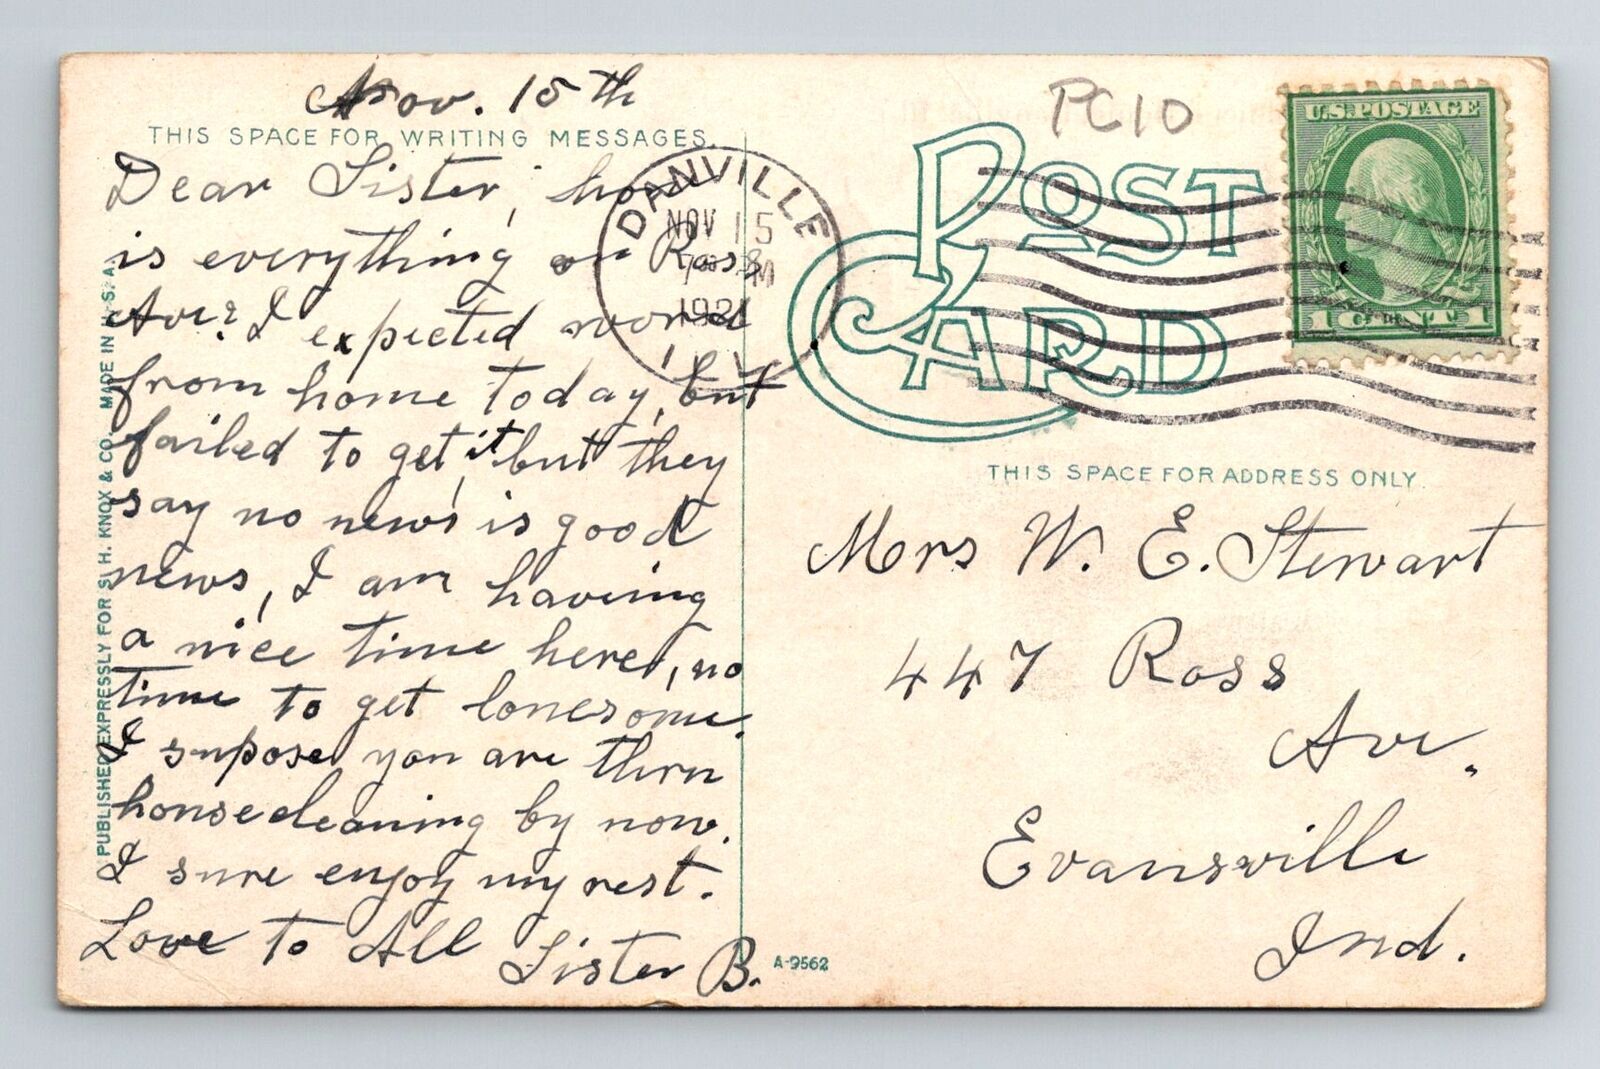 Nov. 15th
THIS SPACE FOR WRITING MESSAGES.
Dear Sister, how
is everything on Ross
Ave? I expected word
from home today, but
failed to get it, but they
say no news is good
news, I am having
a nice time here, no
time to get lonesome.
I supose you are thrn
housecleaning by now.
I sure enjoy my rest.
Love to All
Sister B.
PUBLISHED EXPRESSLY FOR S. H. KNOX & CO. MADE IN U.S.A.
DANVILLE
NOV 15
7 PM
1921
ILL
PC10
POST
CARD
U.S. POSTAGE
1 CENT 1
THIS SPACE FOR ADDRESS ONLY.
Mrs W. E. Stewart
447 Ross
Ave.
Evansville
Ind.
A-9562